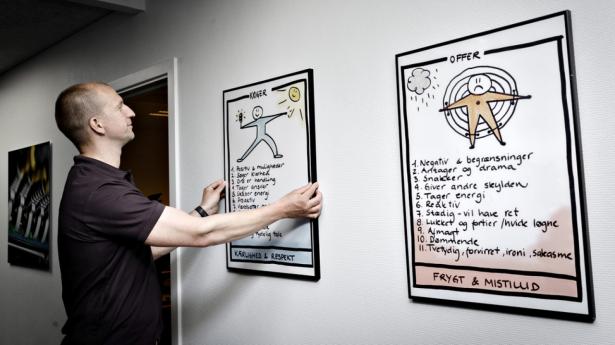 KRIGER
1 Positiv & muligheder
2 Søger klarhed
3 Drø er handling
4 Tager ansvar
5 Udviser energi
6 Proaktiv
KÆRLIGHED & RESPEKT
OFFER
1. Negativ & begrænsninger
2. Aftager og "drama"
3. Snakker
4. Giver andre skylden
5. Tager energi
6. Reaktiv
7. Stædig - vil have ret
8 Lukket og fortier/hvide løgne
9. Almart
10. Dømmende
11. Tvetydig, forvirret, ironi, sakasme
FRYGT & MISTILLID